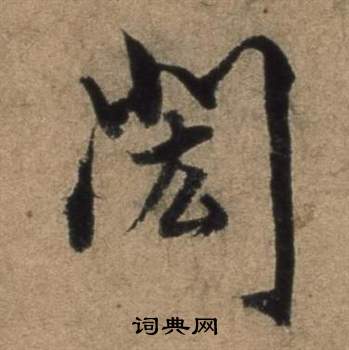 閎
词典网